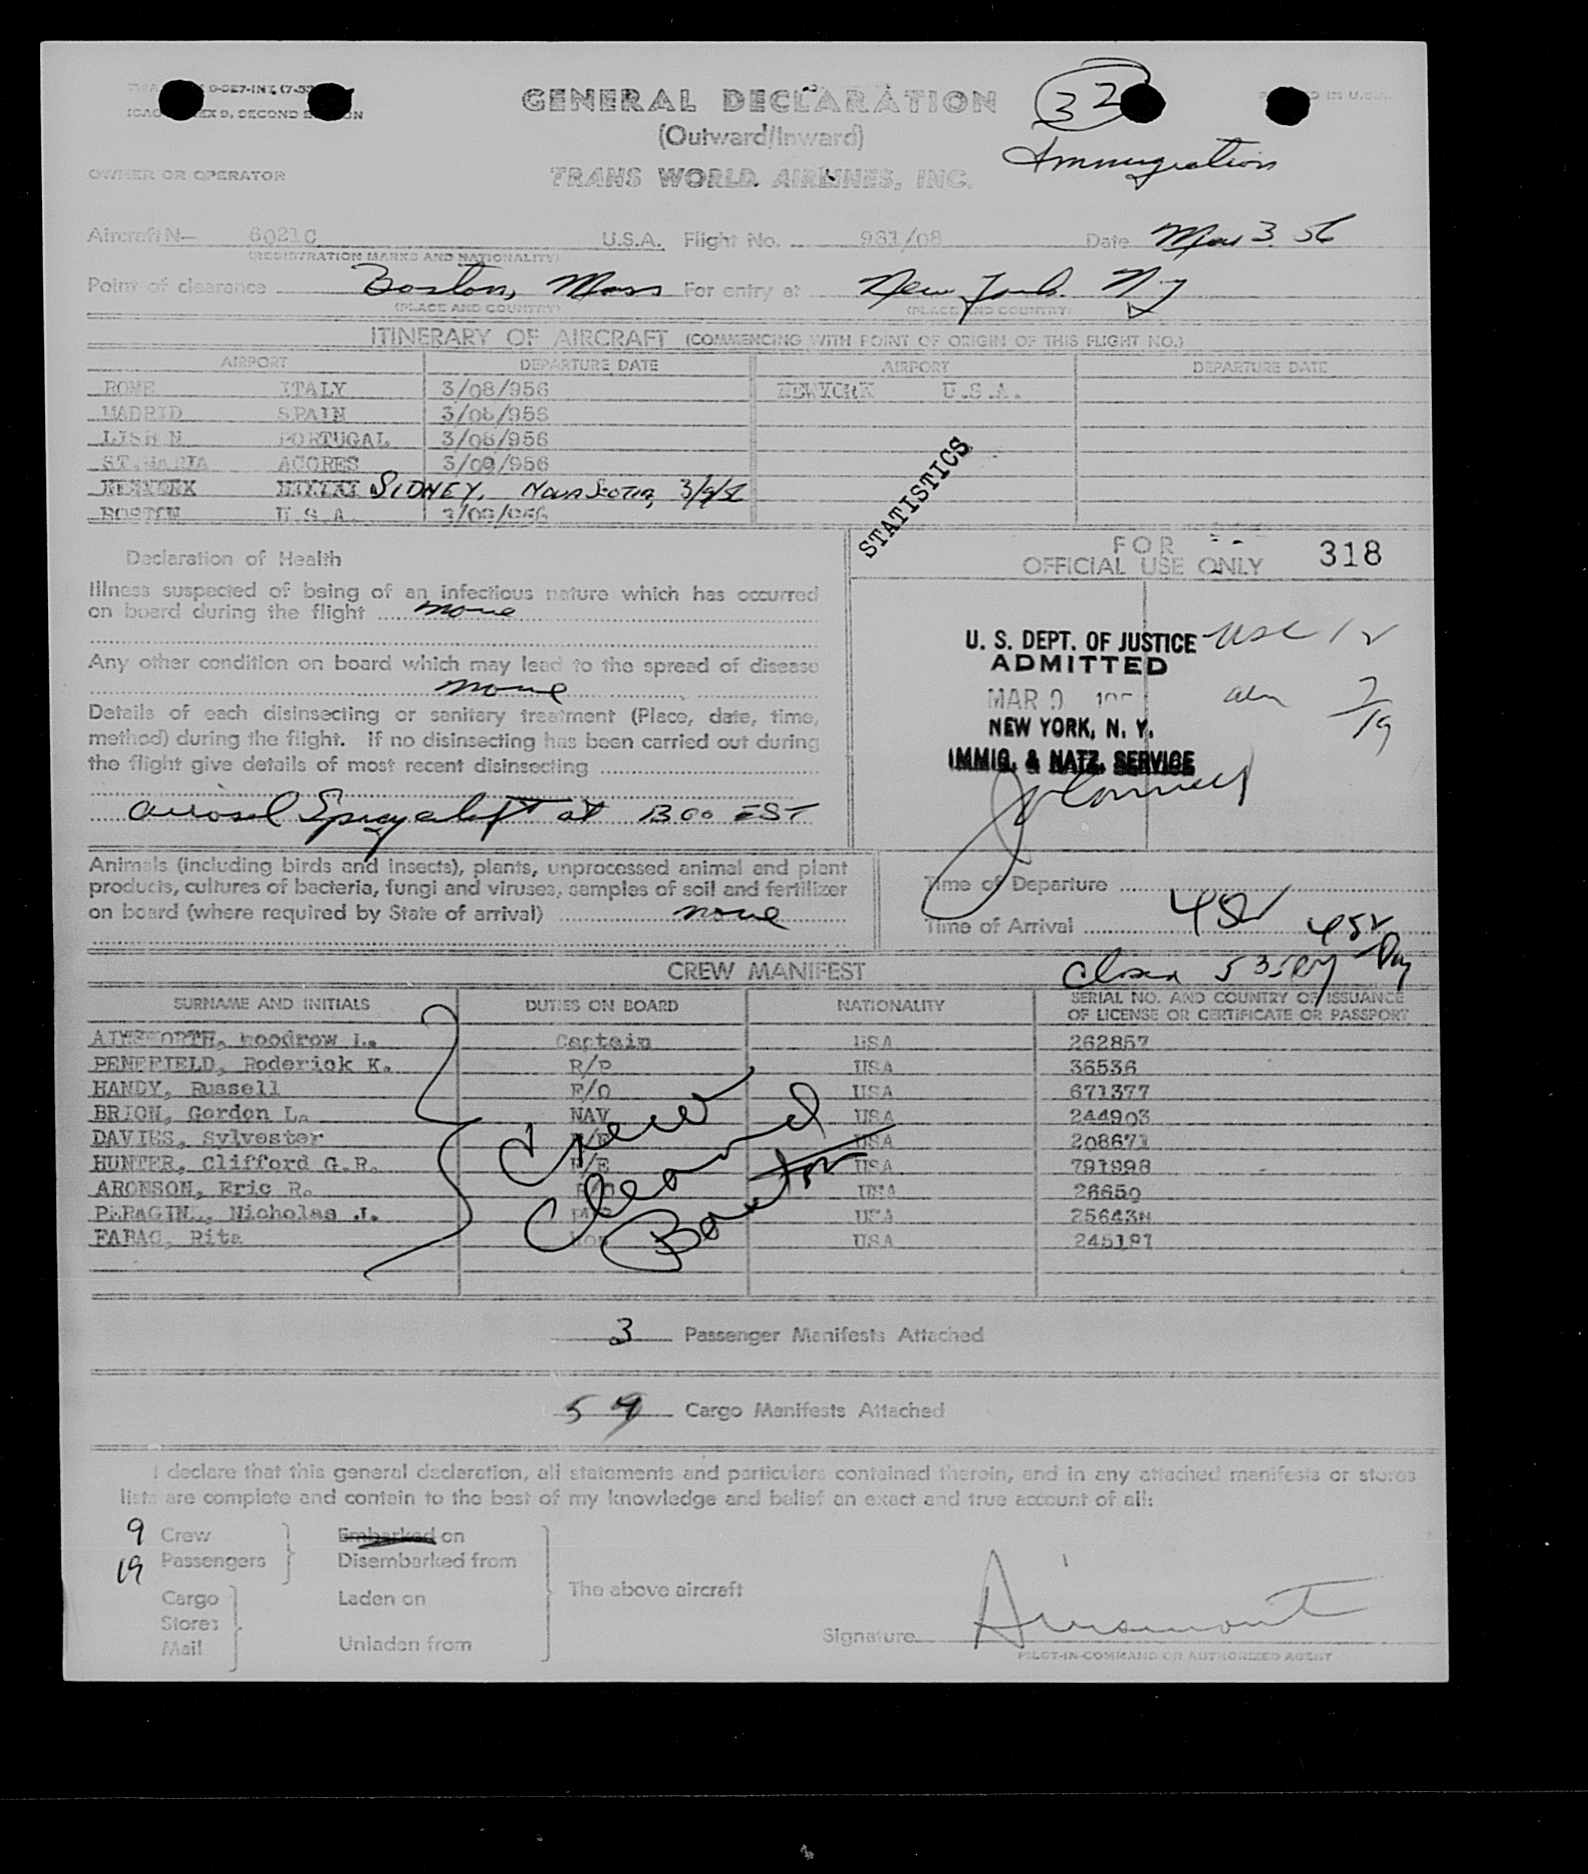 GENERAL DECLARATION
32
(Outward/Inward)
Immigration
OWNER OR OPERATOR TRANS WORLD AIRLINES, INC.
Aircraft N— 6021C U.S.A. Flight No. 981/08 Date Mar 3 56
(REGISTRATION MARKS AND NATIONALITY)
Point of clearance Boston, Mass For entry at New York. NY
(PLACE AND COUNTRY) (PLACE AND COUNTRY)
ITINERARY OF AIRCRAFT (COMMENCING WITH POINT OF ORIGIN OF THIS FLIGHT NO.)
AIRPORT DEPARTURE DATE AIRPORT DEPARTURE DATE
ROME ITALY 3/08/956 NEWYORK U.S.A.
MADRID SPAIN 3/08/956
LISB N PORTUGAL 3/08/956
ST.MARIA ACORES 3/09/956
SIDNEY, NOVA SCOTIA, 3/9/56
BOSTON U.S.A. 3/09/956
STATISTICS
FOR
OFFICIAL USE ONLY 318
Declaration of Health
Illness suspected of being of an infectious nature which has occurred
on board during the flight none
Any other condition on board which may lead to the spread of disease
none
Details of each disinsecting or sanitary treatment (Place, date, time,
method) during the flight. If no disinsecting has been carried out during
the flight give details of most recent disinsecting
aerosol Spray aloft at 1300 EST
U. S. DEPT. OF JUSTICE usc 12
ADMITTED
MAR 9 aln 7
NEW YORK, N. Y. 19
IMMIG. & NATZ. SERVICE
Animals (including birds and insects), plants, unprocessed animal and plant
products, cultures of bacteria, fungi and viruses, samples of soil and fertilizer
on board (where required by State of arrival) none
Time of Departure
Time of Arrival 452
452
CREW MANIFEST
SURNAME AND INITIALS DUTIES ON BOARD NATIONALITY SERIAL NO. AND COUNTRY OF ISSUANCE
OF LICENSE OR CERTIFICATE OR PASSPORT
AINSWORTH, Woodrow L. Captain USA 262857
PENEFIELD, Roderick K. R/P USA 36536
HANDY, Russell F/O USA 671377
BRION, Gordon L. NAV USA 244903
DAVIES, Sylvester F/E USA 208671
HUNTER, Clifford G.R. F/E USA 791998
ARONSON, Eric R. USA 26650
Nicholas J. USA
FABAC, Rita Hos USA 245197
Crew
Cleared
Boston
3 Passenger Manifests Attached
59 Cargo Manifests Attached
I declare that this general declaration, all statements and particulars contained therein, and in any attached manifests or stores
lists are complete and contain to the best of my knowledge and belief an exact and true account of all:
9 Crew Embarked on
19 Passengers Disembarked from
The above aircraft
Cargo Laden on
Stores
Mail Unladen from
Signature
PILOT-IN-COMMAND OR AUTHORIZED AGENT